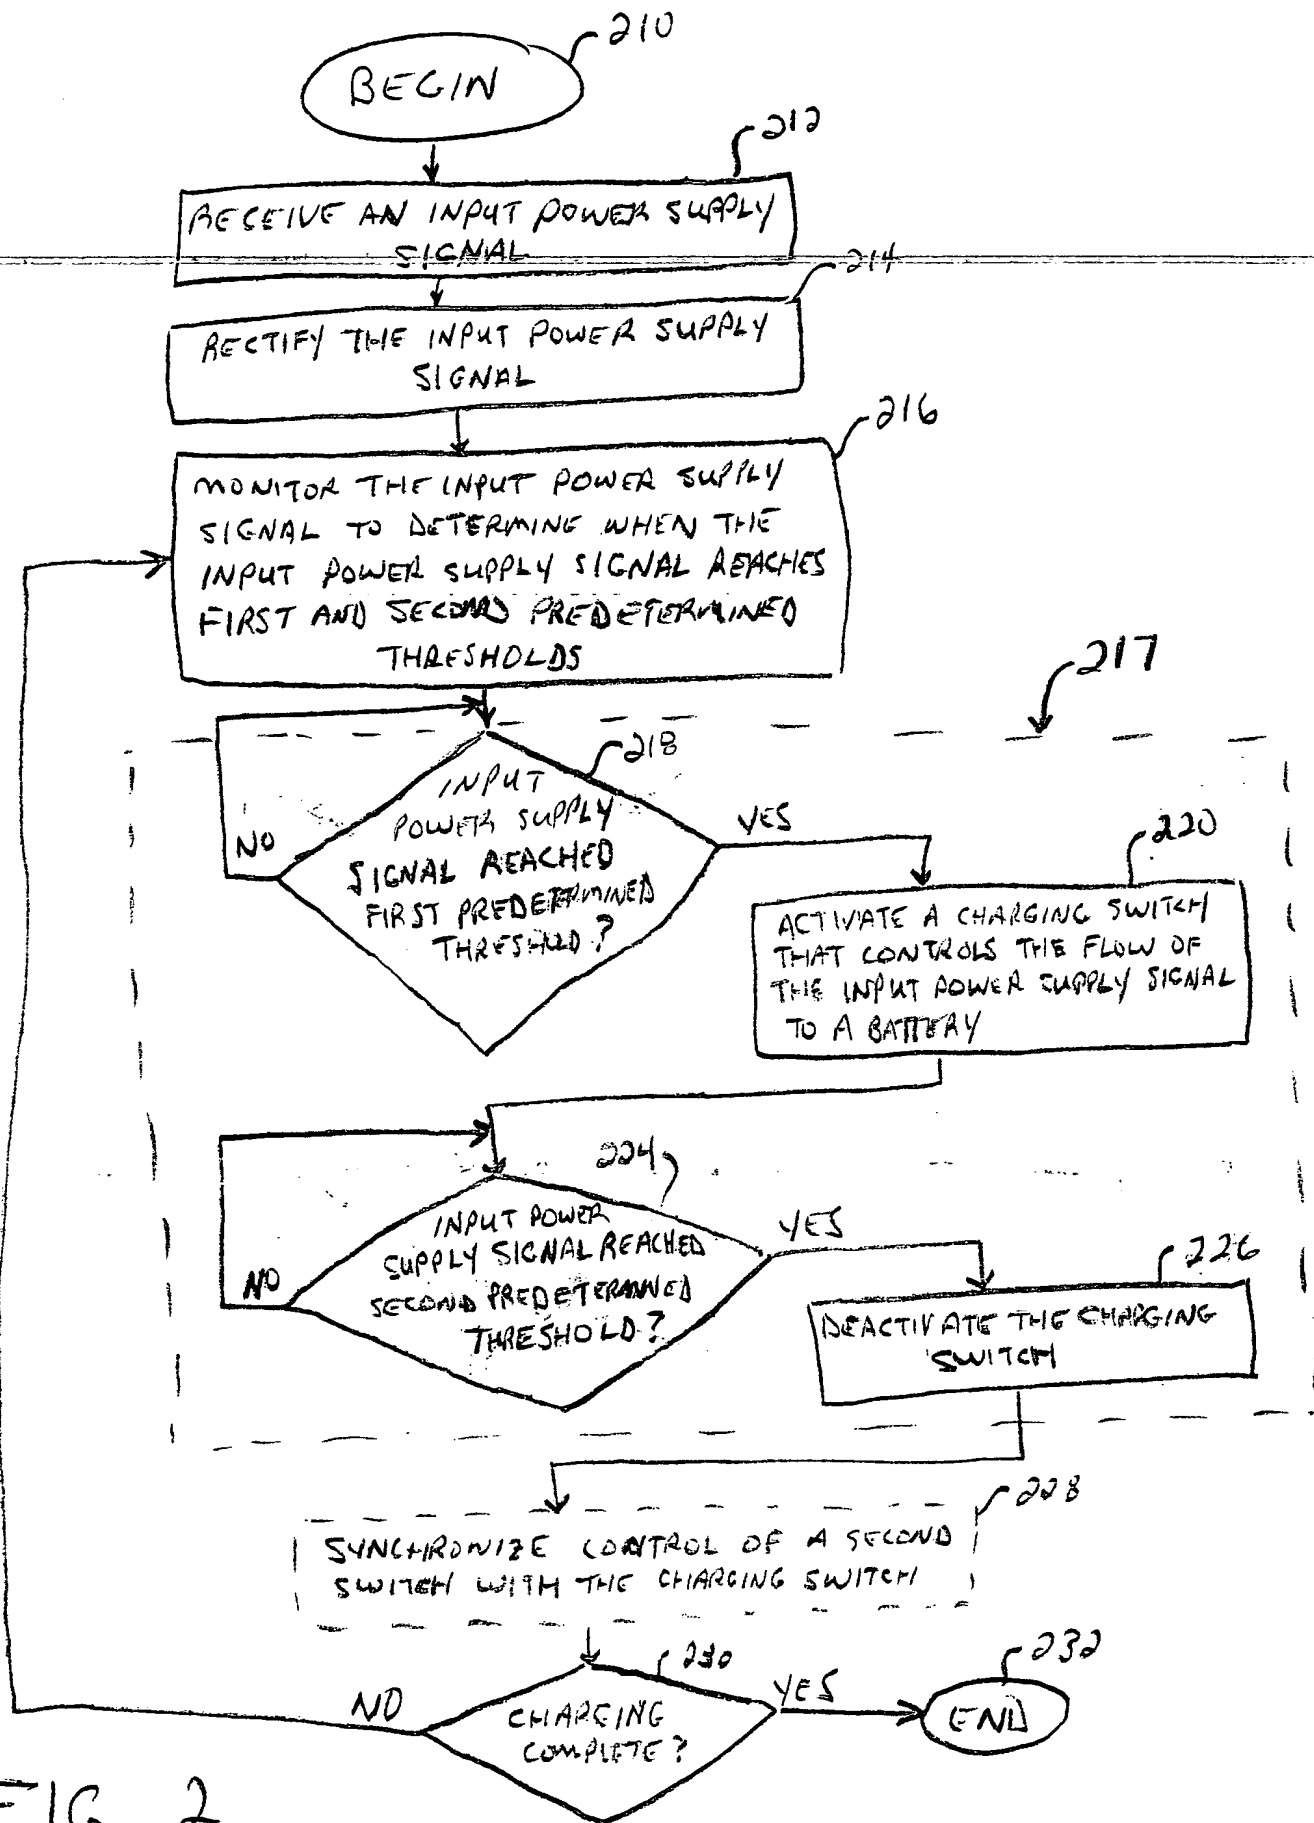 210
BEGIN
212
RECEIVE AN INPUT POWER SUPPLY
SIGNAL
214
RECTIFY THE INPUT POWER SUPPLY
SIGNAL
216
MONITOR THE INPUT POWER SUPPLY
SIGNAL TO DETERMINE WHEN THE
INPUT POWER SUPPLY SIGNAL REACHES
FIRST AND SECOND PREDETERMINED
THRESHOLDS
217
218
INPUT
POWER SUPPLY
SIGNAL REACHED
FIRST PREDETERMINED
THRESHOLD?
NO
YES
220
ACTIVATE A CHARGING SWITCH
THAT CONTROLS THE FLOW OF
THE INPUT POWER SUPPLY SIGNAL
TO A BATTERY
224
INPUT POWER
SUPPLY SIGNAL REACHED
SECOND PREDETERMINED
THRESHOLD?
NO
YES
226
DEACTIVATE THE CHARGING
SWITCH
228
SYNCHRONIZE CONTROL OF A SECOND
SWITCH WITH THE CHARGING SWITCH
230
CHARGING
COMPLETE?
NO
YES
232
END
FIG 2